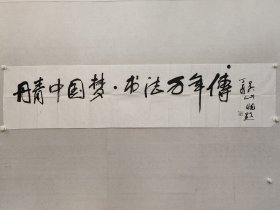 丹青中国梦·书法万年傳